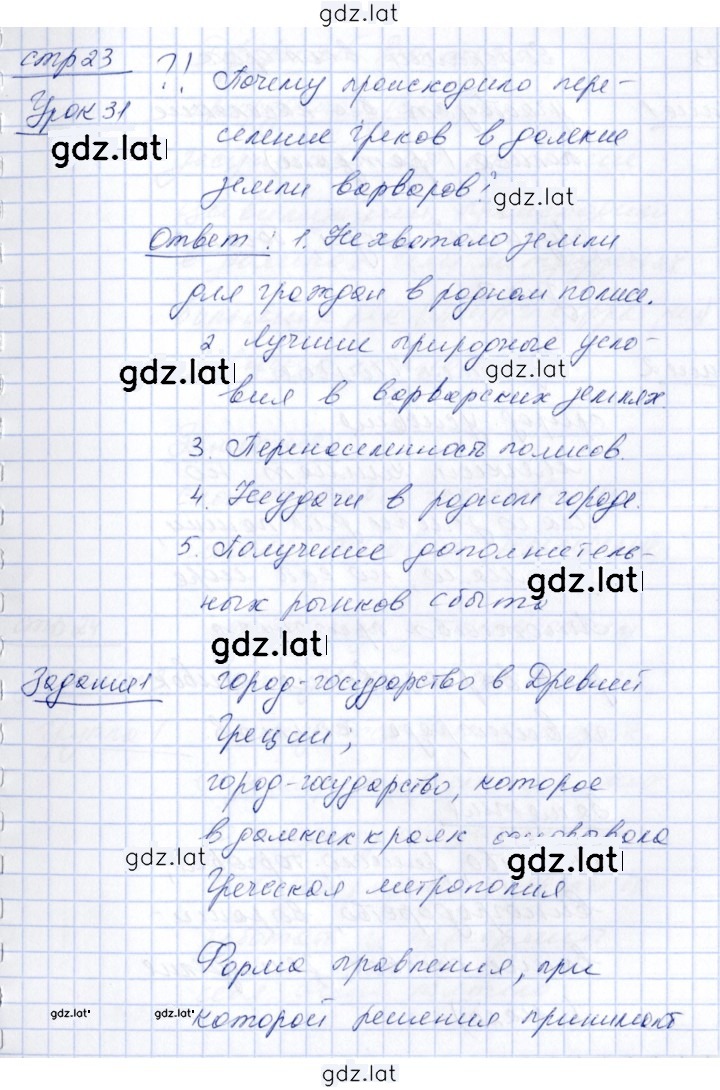 gdz.lat
стр 23 ?! Почему происходило пере-
Урок 31 селение греков в далекие
gdz.lat
земли варваров? gdz.lat
Ответ: 1. Не хватало земли
для граждан в родном полисе.
2 Лучшие природные усло-
gdz.lat gdz.lat
вия в варварских землях.
3. Перенаселенность полисов.
4. Неудачи в родном городе.
5. Получение дополнитель-
gdz.lat
ных рынков сбыта
gdz.lat
Задание 1 город-государство в Древней
Греции;
город-государство, которое
в далеких краях основывала
gdz.lat gdz.lat
Греческая метрополия
Форма правления, при
gdz.lat gdz.lat которой решения принимают
gdz.lat